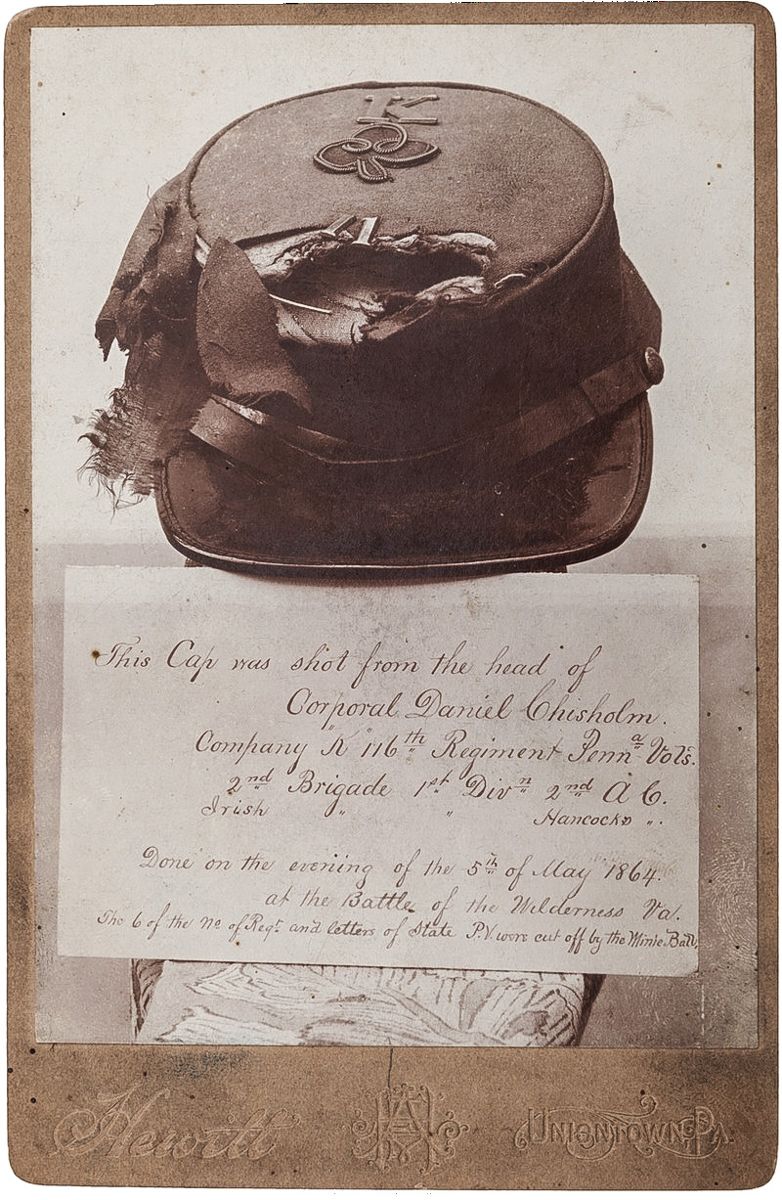 K
11
This Cap was shot from the head of
Corporal Daniel Chisholm.
Company "K" 116th Regiment Penna Vols.
2nd Brigade 1st Divn 2nd A C.
Irish " " Hancocks ".
Done on the evening of the 5th of May 1864.
at the Battle of the Wilderness Va.
The 6 of the No of Regt and letters of State P.V. were cut off by the Minie Ball,
Hewitt
UNIONTOWN, PA.